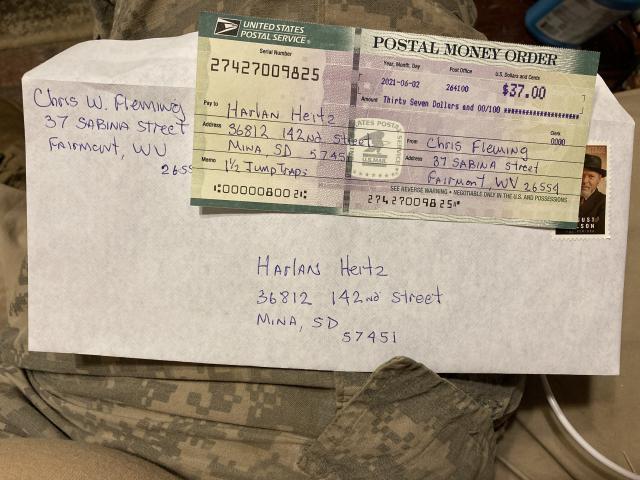 UNITED STATES
POSTAL SERVICE®
Serial Number
27427009825
Pay to Harlan Heitz
Address 36812 142nd Street
Mina, SD 57451
Memo 1½ Jump Traps
⑆000000800 2⑆
POSTAL MONEY ORDER
Year, Month, Day Post Office U.S. Dollars and Cents
2021-06-02 264100 $37.00
Amount Thirty Seven Dollars and 00/100 ********************
Clerk
0000
From Chris Fleming
Address 37 Sabina Street
Fairmont, WV 26554
SEE REVERSE WARNING • NEGOTIABLE ONLY IN THE U.S. AND POSSESSIONS
27427009825⑈
Chris W. Fleming
37 Sabina Street
Fairmont, WV
2655
Harlan Heitz
36812 142nd Street
Mina, SD
57451